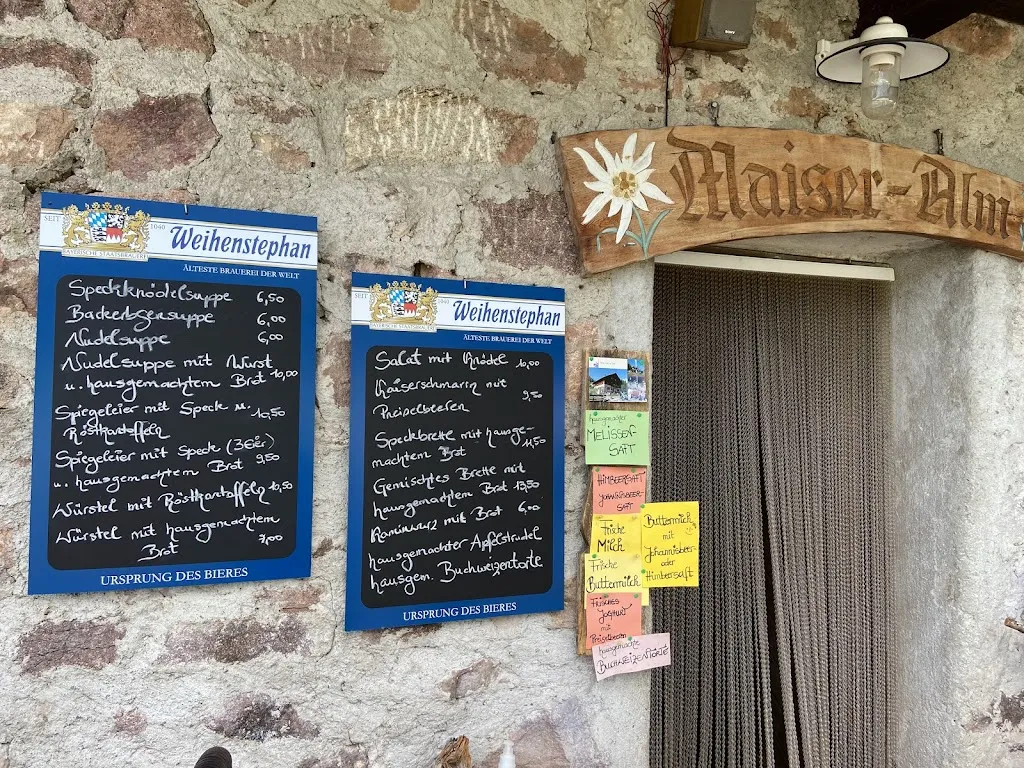 SEIT
1040
BAYERISCHE STAATSBRAUEREI
Weihenstephan
ÄLTESTE BRAUEREI DER WELT
Speckknödelsuppe 6,50
Backerbsensuppe 6,00
Nudelsuppe 6,00
Nudelsuppe mit Wurst
u. hausgemachtem Brot 10,00
Spiegeleier mit Speck u. 10,50
Röstkartoffeln
Spiegeleier mit Speck (3 Eier)
u. hausgemachtem Brot 9,50
Würstel mit Röstkartoffeln 10,50
Würstel mit hausgemachtem
Brot 7,00
URSPRUNG DES BIERES
SEIT
1040
BAYERISCHE STAATSBRAUEREI
Weihenstephan
ÄLTESTE BRAUEREI DER WELT
Salat mit Knödel 10,00
Kaiserschmarrn mit
Preiselbeeren 9,50
Speckbrettl mit hausge-
machtem Brot 11,50
Gemischtes Brettl mit
hausgemachtem Brot 13,50
Kaminwurz mit Brot 6,00
hausgemachter Apfelstrudel
hausgem. Buchweizentorte
URSPRUNG DES BIERES
SONY
Maiser-Alm
hausgemachter
MELISSEN-
SAFT
HIMBEERSAFT
JOHANNISBEER-
SAFT
Frische
Milch
Buttermilch
mit
Johannisbeer-
oder
Himbeersaft
Frische
Buttermilch
FRISCHES
JOGHURT
mit
Preiselbeeren
hausgemachte
BUCHWEIZENTORTE